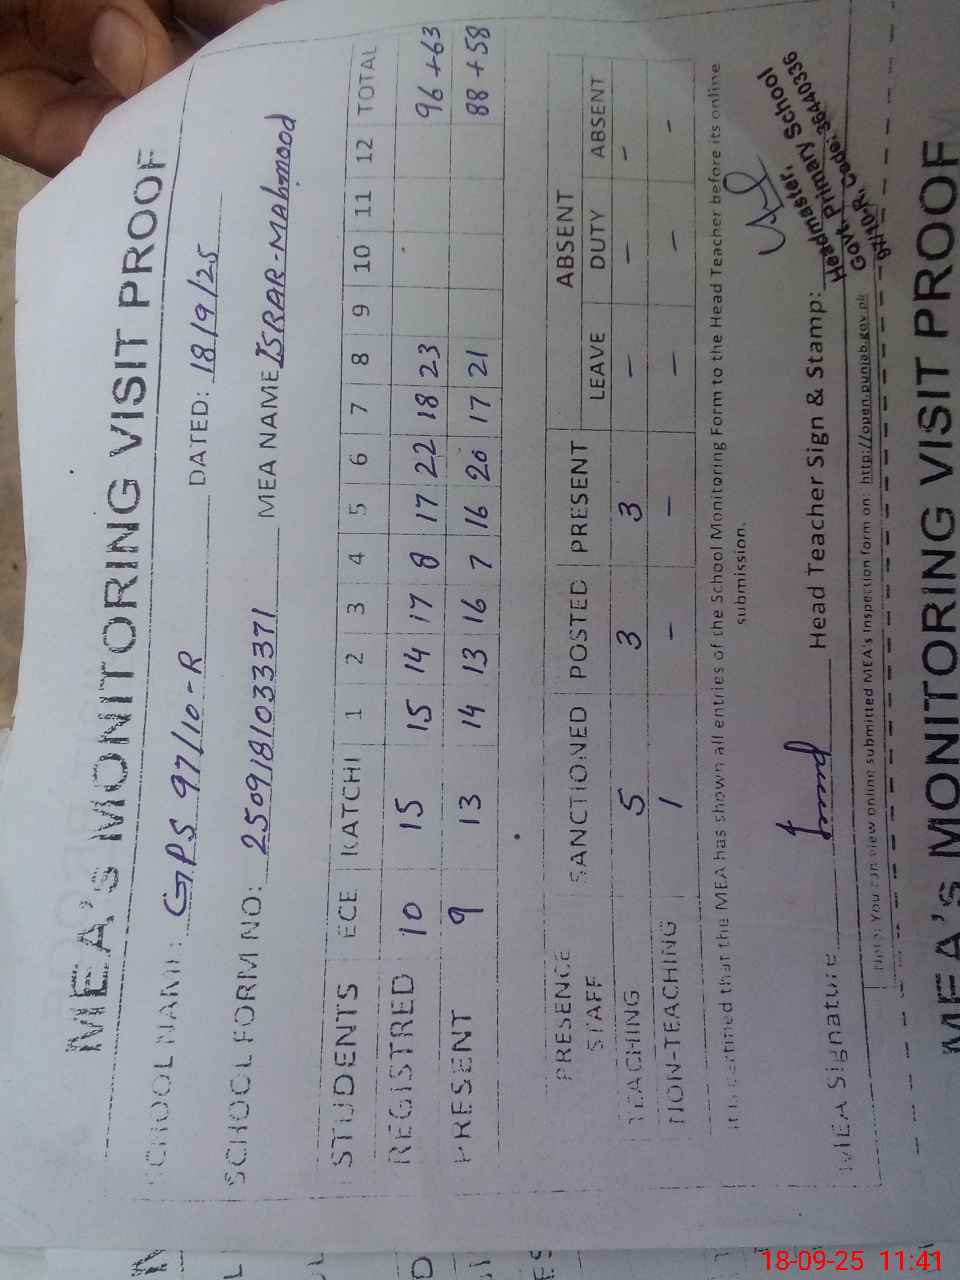 MEA'S MONITORING VISIT PROOF
SCHOOL NAME: GPS 97/10-R DATED: 18/9/25
SCHOOL FORM NO: 2509181033371 MEA NAME ISRAR-MAHMOOD
STUDENTS ECE KATCHI 1 2 3 4 5 6 7 8 9 10 11 12 TOTAL
REGISTRED 10 15 15 14 17 8 17 22 18 23 96+63
PRESENT 9 13 14 13 16 7 16 20 17 21 88+58
PRESENCE STAFF SANCTIONED POSTED PRESENT ABSENT
LEAVE DUTY ABSENT
TEACHING 5 3 3 - - -
NON-TEACHING 1 - - - - -
It is certified that the MEA has shown all entries of the School Monitoring Form to the Head Teacher before its online
submission.
MEA Signature Head Teacher Sign & Stamp:
Headmaster,
Govt. Primary School
97/10-R, Code: 36440336
You can view online submitted MEA's Inspection form on: http://open.punjab.gov.pk
MEA'S MONITORING VISIT PROOF
18-09-25 11:41